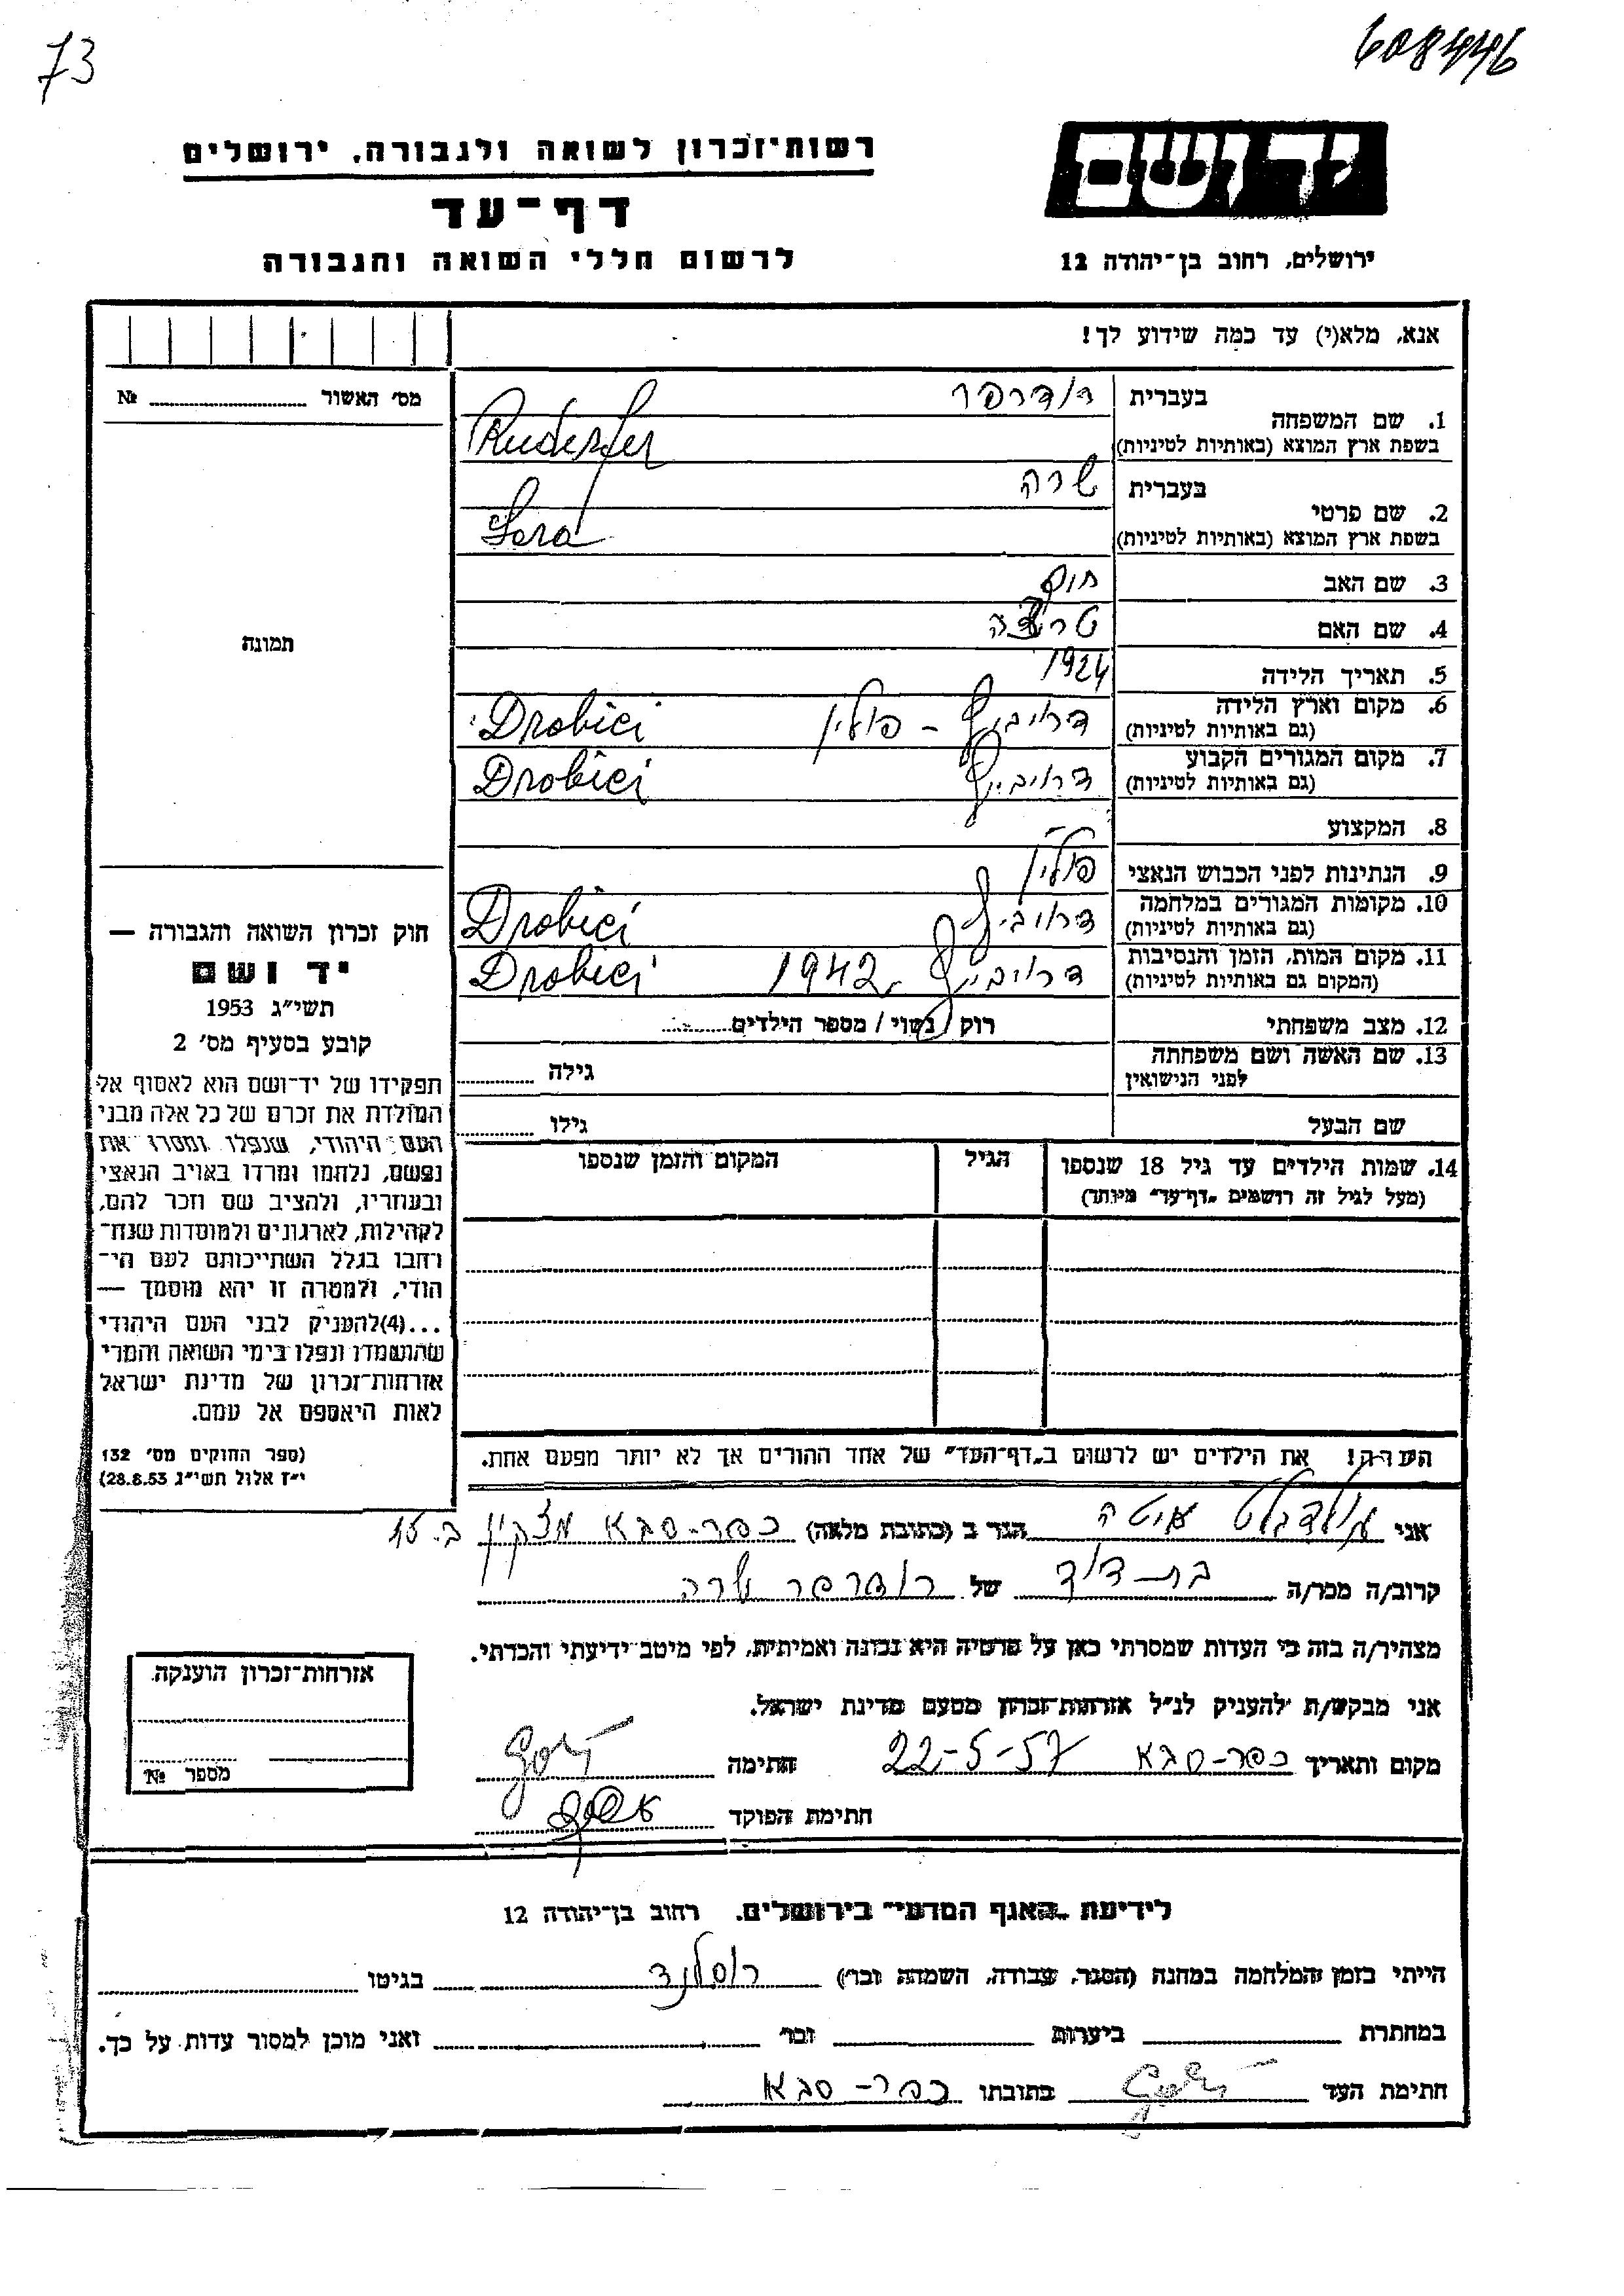 73
608446
רשות־זכרון לשואה ולגבורה, ירושלים
יד ושם
דף־עד
לרשום חללי השואה והגבורה
ירושלים, רחוב בן־יהודה 12
אנא, מלא(י) עד כמה שידוע לך!
מס׳ האשור № 
1. שם המשפחה בעברית רודרפר
בשפת ארץ המוצא (באותיות לטיניות) Ruderfer
2. שם פרטי בעברית שרה
בשפת ארץ המוצא (באותיות לטיניות) Sara
3. שם האב
4. שם האם
5. תאריך הלידה 1924
6. מקום וארץ הלידה (גם באותיות לטיניות) פולין Drobici
7. מקום המגורים הקבוע (גם באותיות לטיניות) Drobici
8. המקצוע
9. הנתינות לפני הכבוש הנאצי פולין
10. מקומות המגורים במלחמה (גם באותיות לטיניות) Drobici
11. מקום המות, הזמן והנסיבות (המקום גם באותיות לטיניות) 1942 Drobici
12. מצב משפחתי רוק / נשוי / מספר הילדים
13. שם האשה ושם משפחתה לפני הנישואין גילה
שם הבעל גילו
14. שמות הילדים עד גיל 18 שנספו
(מעל לגיל זה רושמים „דף־עד״ מיוחד)
הגיל
המקום והזמן שנספו
הערה! את הילדים יש לרשום ב„דף־העד״ של אחד ההורים אך לא יותר מפעם אחת.
תמונה
חוק זכרון השואה והגבורה —
יד ושם
תשי״ג 1953
קובע בסעיף מס׳ 2
תפקידו של יד־ושם הוא לאסוף אל
המולדת את זכרם של כל אלה מבני
העם היהודי, שנפלו ומסרו את
נפשם, נלחמו ומרדו באויב הנאצי
ובעוזריו, ולהציב שם וזכר להם,
לקהילות, לארגונים ולמוסדות שנח־
רבו בגלל השתייכותם לעם הי־
הודי, ולמטרה זו יהא מוסמך —
...(4)להעניק לבני העם היהודי
שהושמדו ונפלו בימי השואה והמרי
אזרחות־זכרון של מדינת ישראל
לאות היאספם אל עמם.
(ספר החוקים מס׳ 132
י״ז אלול תשי״ג 28.8.53)
אני הגר ב (כתובת מלאה) כפר-סבא
קרוב/ה מכר/ה בת-דוד של רודרפר שרה
מצהיר/ה בזה כי העדות שמסרתי כאן על פרטיה היא נכונה ואמיתית, לפי מיטב ידיעתי והכרתי.
אני מבקש/ת להעניק לנ״ל אזרחות־זכרון מטעם מדינת ישראל.
מקום ותאריך כפר-סבא 22-5-57 חתימה
חתימת הפוקד
אזרחות־זכרון הוענקה.
מספר №
לידיעת „האגף המדעי״ בירושלים. רחוב בן־יהודה 12
הייתי בזמן המלחמה במחנה (הסגר, עבודה, השמדה וכו׳) בגיטו
במחתרת ביערות וכו׳ ואני מוכן למסור עדות על כך.
חתימת העד כתובתו כפר-סבא